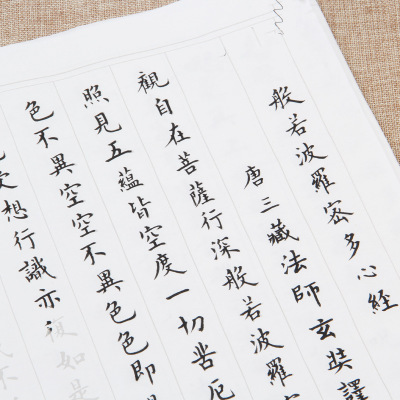 般若波羅密多心經
唐三藏法師玄奘譯
觀自在菩薩行深般若波羅密
照見五蘊皆空度一切苦厄
色不異空空不異色色即是
想行識亦
復如是